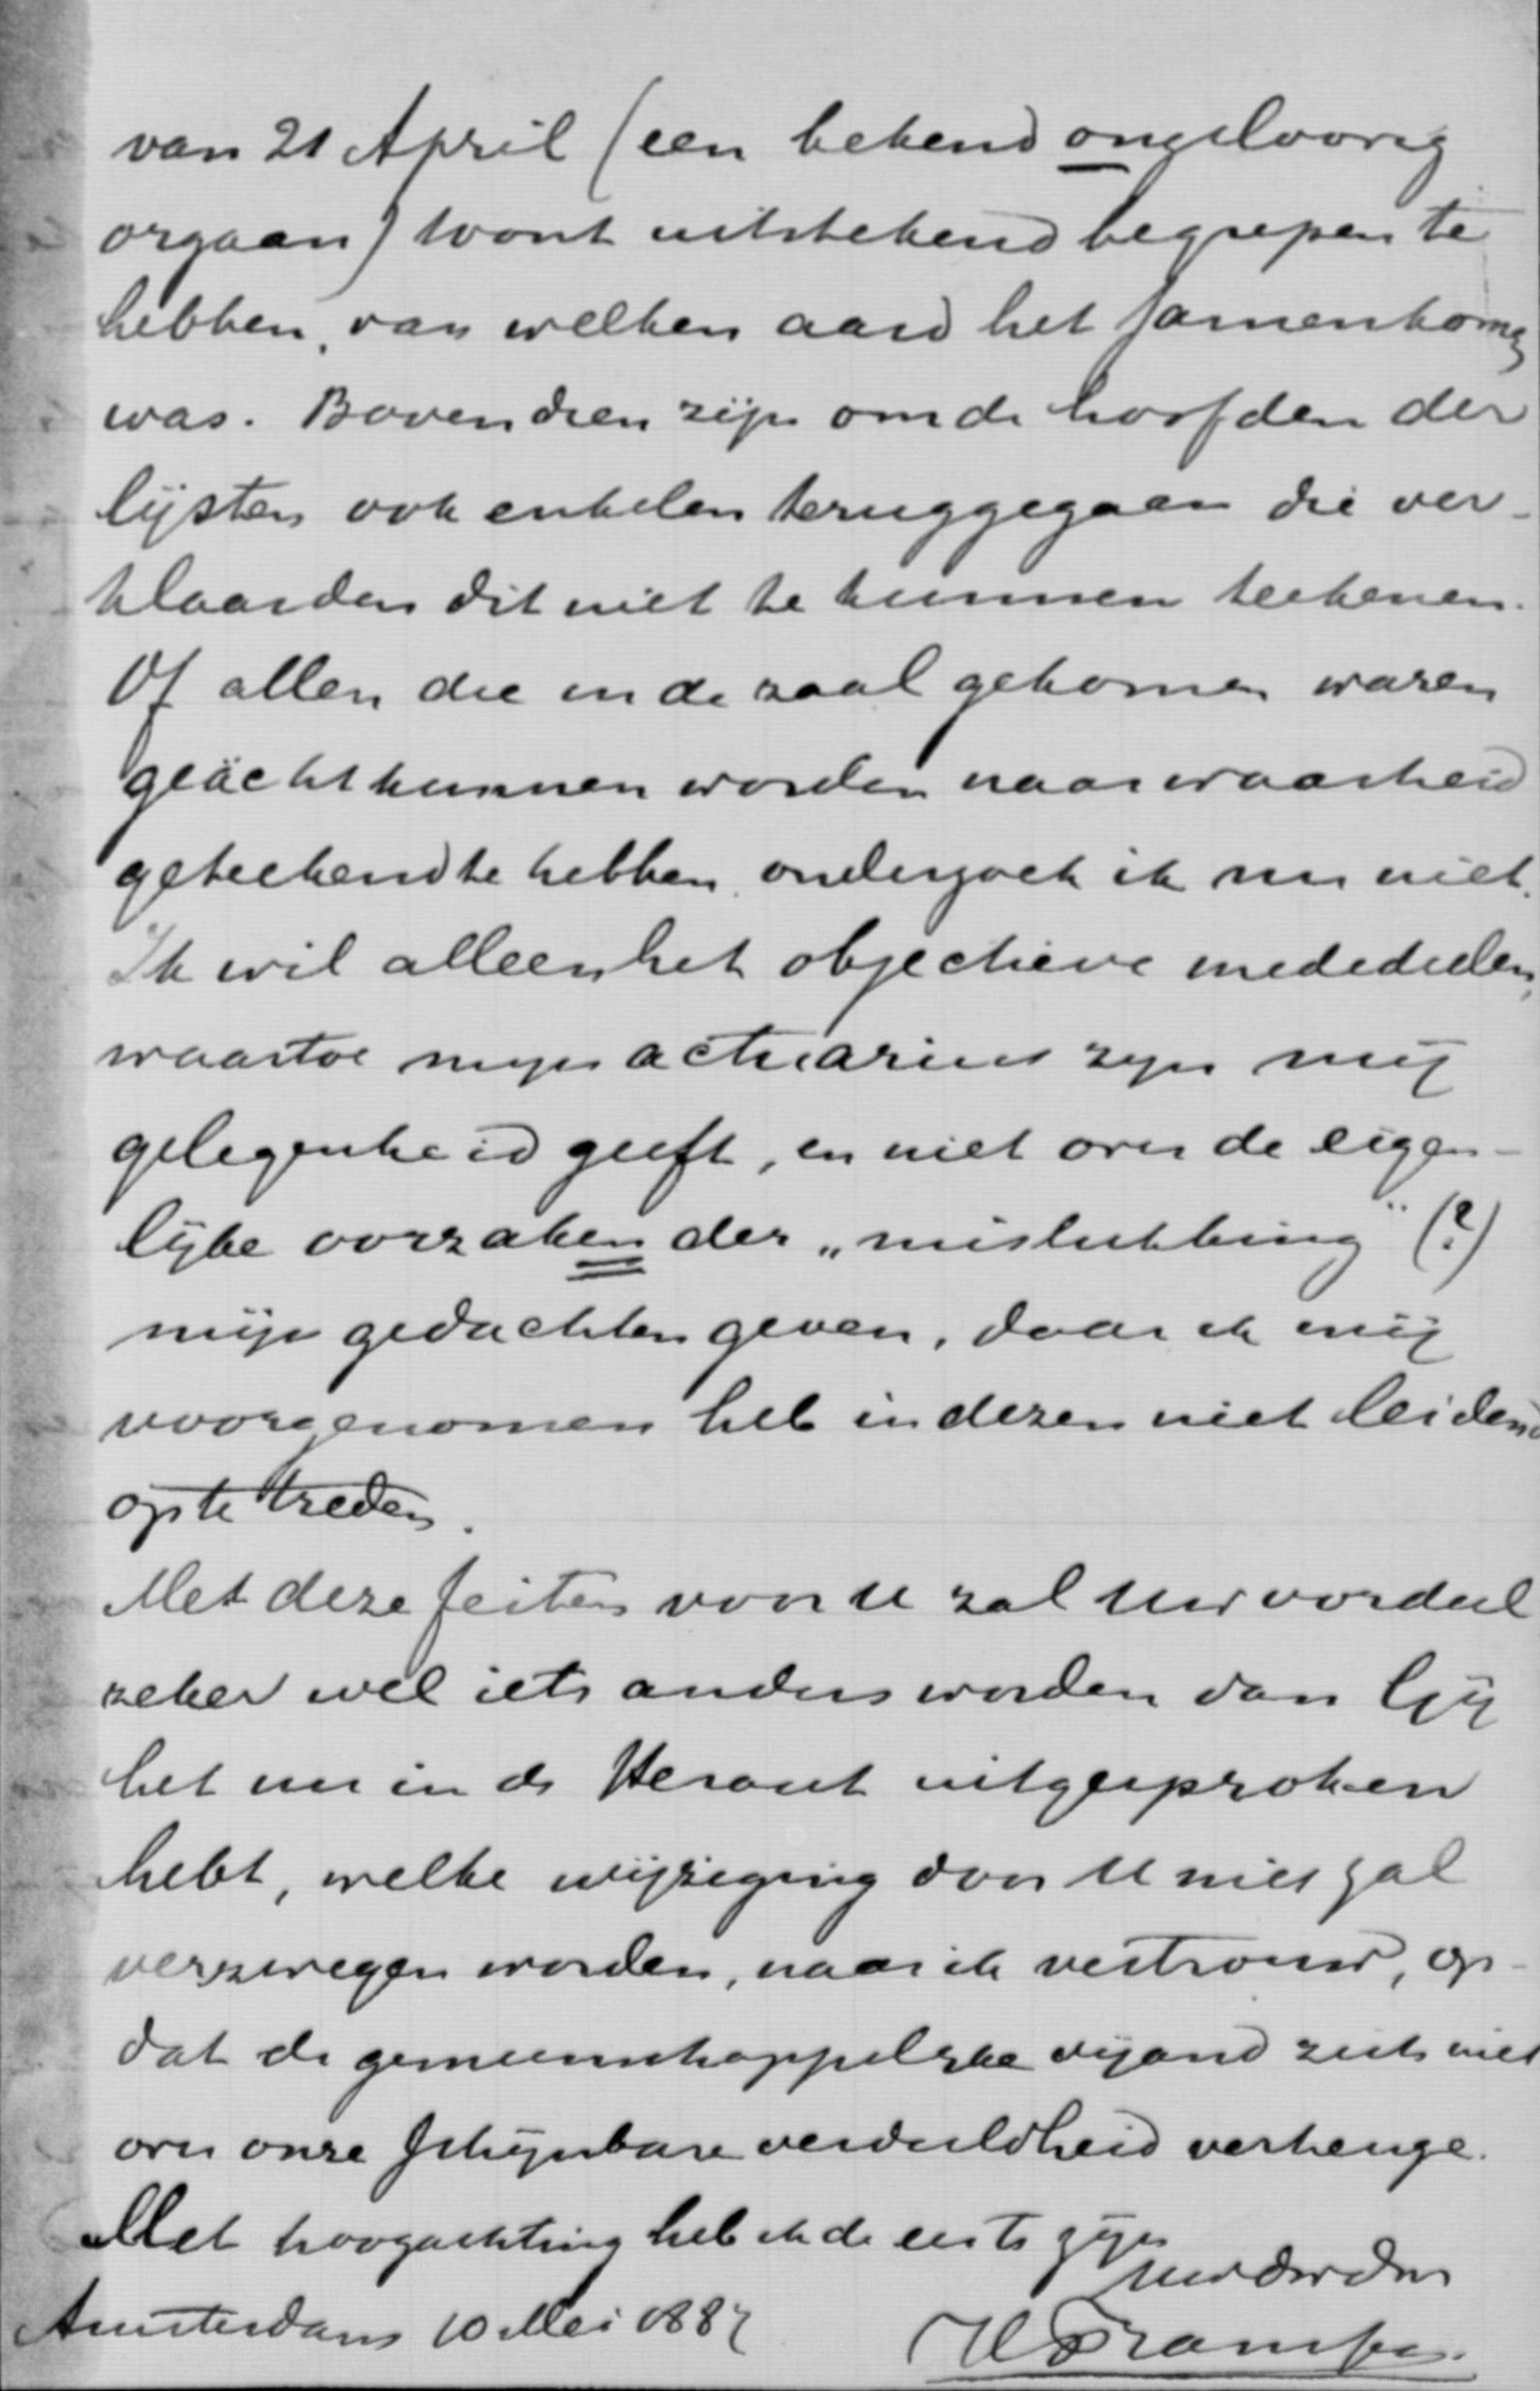 van 21 April (een bekend ongeloovig
orgaan) toont uitstekend begrepen te
hebben, van welken aard het samenkomen
was. Bovendien zijn om de hoofden der
lijsten ook enkelen teruggegaan die ver-
klaarden dit niet te kunnen teekenen.
Of allen die in de zaal gekomen waren
geacht kunnen worden naar waarheid
geteekend te hebben onderzoek ik nu niet.
Ik wil alleen het objectieve mededeelen,
waartoe mijn actuarius zijn mij
gelegenheid geeft, en niet over de eigen-
lijke oorzaken der „mislukking" (?)
mijn gedachten geven, daar ik mij
voorgenomen heb in dezen niet leidend
op te treden.
Met deze feiten voor U zal Uw oordeel
zeker wel iets anders worden dan Gij
het nu in de Heraut uitgesproken
hebt, welke wijziging door U niet zal
verzwegen worden, naar ik vertrouw, op-
dat de gemeenschappelijke vijand zich niet
over onze schijnbare verdeeldheid verheuge.
Met hoogachting heb ik de eer te zijn
Uw dw dn
Amsterdam 10 Mei 1887